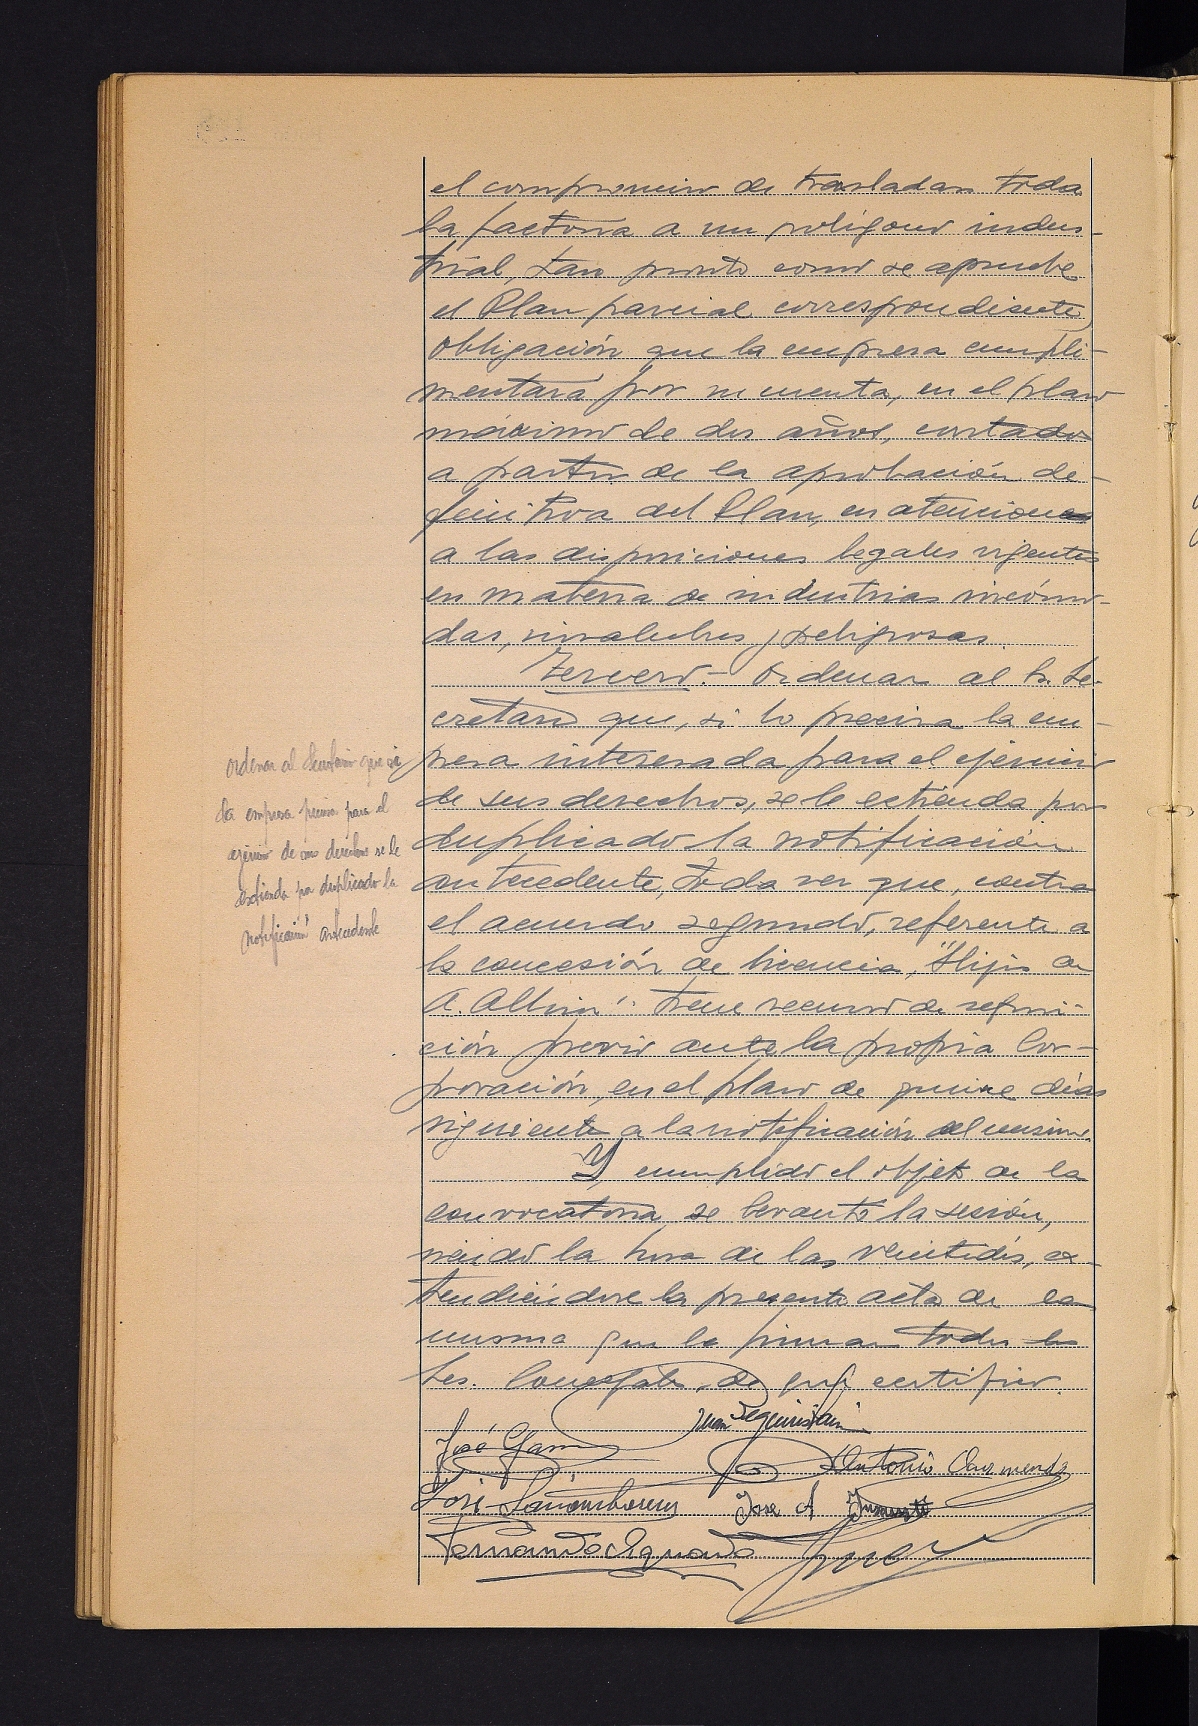 el compromiso de trasladar toda
la factoria a un polígono indus-
trial, tan pronto como se apruebe
el Plan parcial correspondiente,
obligación que la empresa cumpli-
mentará por su cuenta, en el plazo
máximo de dos años, contados
a partir de la aprobación de-
finitiva del Plan, en atención
a las disposiciones legales vigentes
en materia de industrias incómo-
das, insalubres y peligrosas.
Tercero.- Ordenar al Sr. Se-
cretario que, si lo precisa la em-
presa interesada para el ejercicio
de sus derechos, se le extienda por
duplicado la notificación
antecedente, toda vez que, contra
el acuerdo segundo, referente a
la concesión de licencia, "Hijos de
A. " tiene recurso de reposi-
ción previo ante la propia Cor-
poración, en el plazo de quince días
siguiente a la notificación del mismo.
Y, cumplido el objeto de la
convocatoria, se levantó la sesión,
siendo la hora de las veintidós, ex-
tendiéndose la presente acta de la
misma que la firman todos los
Sres. Concejales, de que certifico.
ordenar al Secretario que si
la empresa precisa para el
ejercicio de sus derechos se le
extienda por duplicado la
notificación antecedente
Juan
José
Antonio
José
Jose A
Fernando Aguado